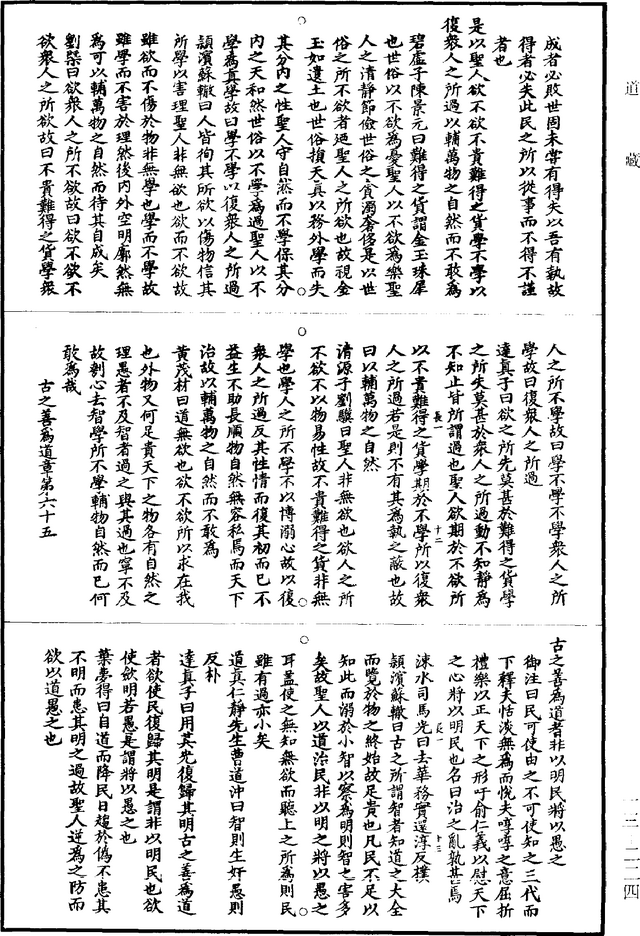 道藏
成者必敗世固未嘗有得失以吾有執故
得者必失此民之所以從事而不得不謹
者也
是以聖人欲不欲不貴難得之貨學不學以
復衆人之所過以輔萬物之自然而不敢為
碧虛子陳景元曰難得之貨謂金玉珠犀
也世俗以不欲為憂聖人以不欲為樂聖
人之清靜節儉世俗之貪溺奢侈是以世
俗之所不欲者迺聖人之所欲也故視金
玉如遺土也世俗損天真以務外學而失
其分內之性聖人守自然而不學保其分
內之天和然世俗以不學為過聖人以不
學為真學故曰學不學以復衆人之所過
頴濱蘇轍曰人皆徇其所欲以傷物信其
所學以害理聖人非無欲也欲而不欲故
雖欲而不傷於物非無學也學而不學故
雖學而不害於理然後內外空明廓然無
為可以輔萬物之自然而待其自成矣
劉槩曰欲衆人之所不欲故曰欲不欲不
欲衆人之所欲故曰不貴難得之貨學衆
人之所不學故曰學不學不學衆人之所
學故曰復衆人之所過
達真子曰欲之所先莫甚於難得之貨學
之所失莫甚於衆人之所過動不知靜為
不知止皆所謂過也聖人欲期於不欲所
長一 十二
以不貴難得之貨學期於不學所以復衆
人之所過若是則不有其為執之敵也故
曰以輔萬物之自然
清源子劉驥曰聖人非無欲也欲人之所
不欲不以物易性故不貴難得之貨非無
學也學人之所不學不以博溺心故以復
衆人之所過反其性情而復其初而已不
益生不助長順物自然無容私焉而天下
治故以輔萬物之自然而不敢為
黄茂材曰道無欲也欲不欲所以求在我
也外物又何足貴天下之物各有自然之
理愚者不及智者過之與其過也寧不及
故剖心去智學所不學輔物自然而已何
敢為哉
古之善為道章第六十五
古之善為道者非以明民將以愚之
御注曰民可使由之不可使知之三代而
下釋夫恬淡無為而悅夫啍啍之意屈折
禮樂以正天下之形吁俞仁義以慰天下
之心將以明民也名曰治之亂孰甚焉
長一 十三
涑水司馬光曰去華務實還淳反樸
頴濱蘇轍曰古之所謂智者知道之大全
而覽於物之終始故足貴也凡民不足以
知此而溺於小智以察為明則智之害多
矣故聖人以道治民非以明之將以愚之
耳蓋使之無知無欲而聽上之所為則民
雖有過亦小矣
道真仁靜先生曹道沖曰智則生姧愚則
反朴
達真子曰用其光復歸其明古之善為道
者欲使民復歸其明是謂非以明民也欲
使欲明若愚是謂將以愚之也
葉夢得曰自道而降民日趨於僞不患其
不明而患其明之過故聖人逆為之防而
欲以道愚之也
一三—二二四